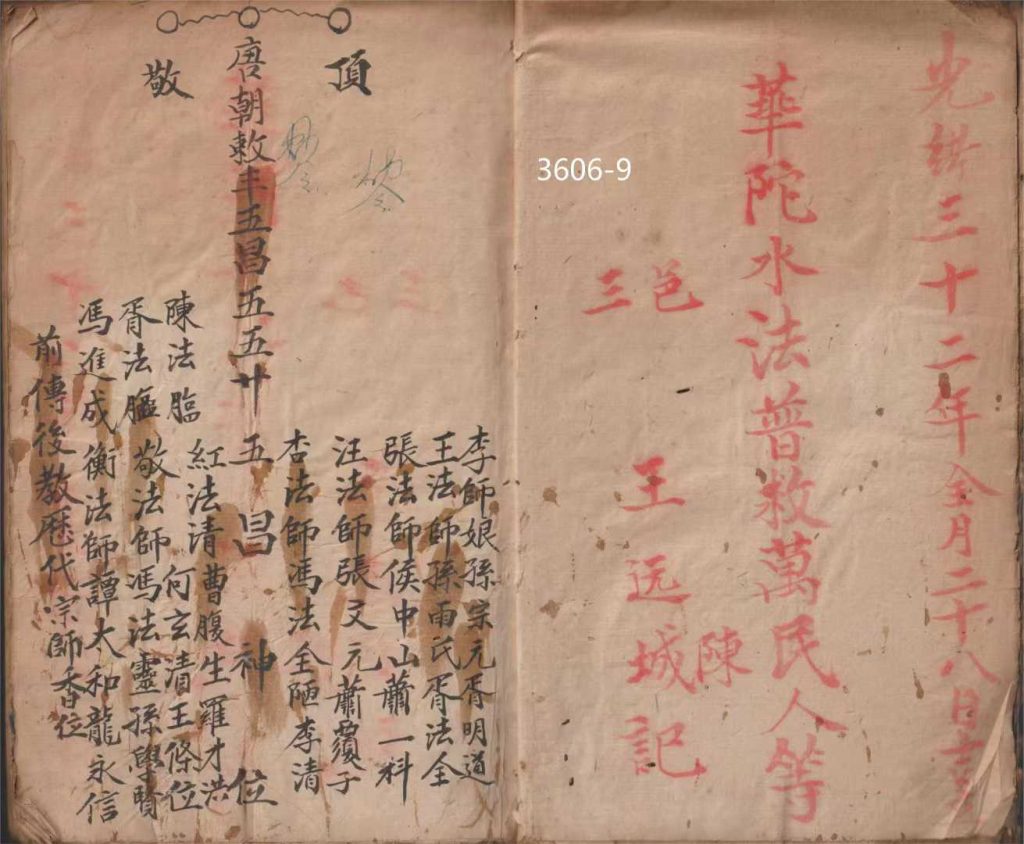 光緒三十二年全月二十八日
華陀水法普救萬民人等
3606-9
三邑
王远城記
陳
頂敬
李師娘孫宗元胥明道
王法師孫雨氏胥法全
張法師侯中山蕭一科
汪法師張文元蕭覆子
杏法師馮法全陋李清
唐朝敕丰五昌五五廿五昌神位
紅法清曹腹生羅才洪
陳法臨何玄清王條位
胥法臨敬法師馮法靈孫學賢
馮進成衡法師譚太和龍永信
前傳後教歷代宗師香位